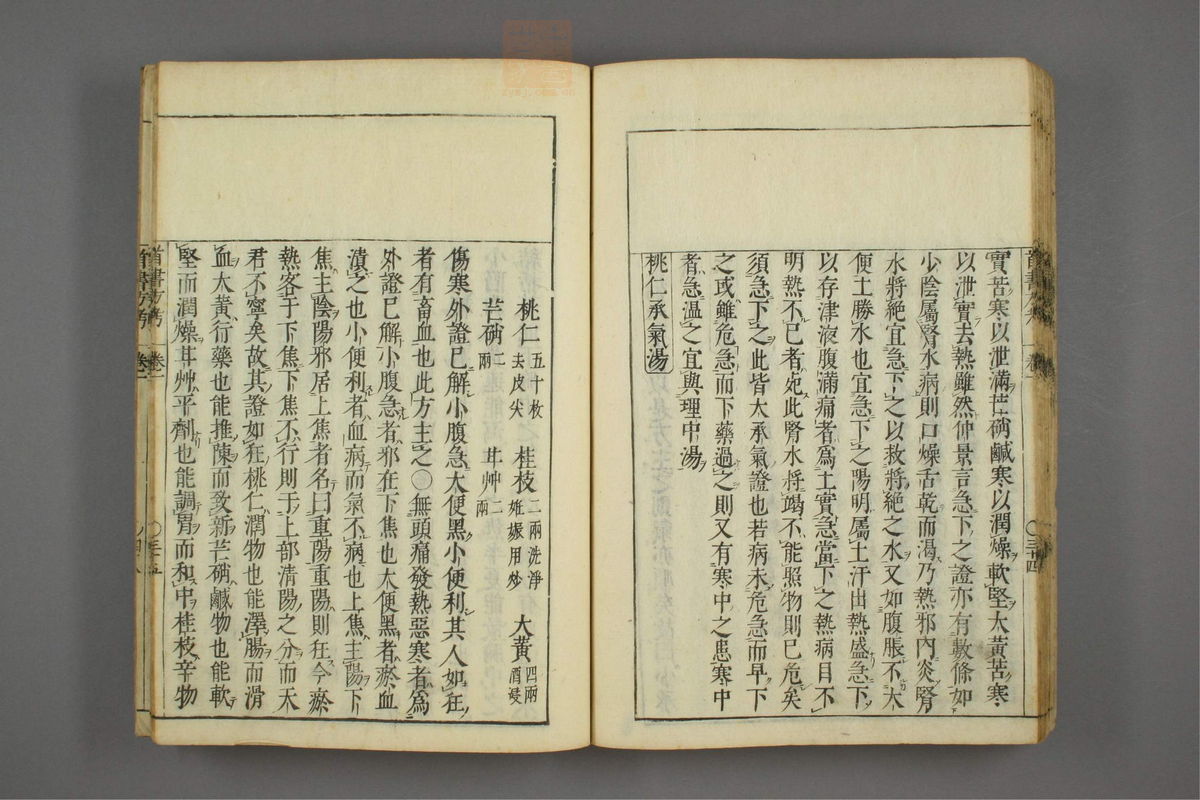 實苦寒以泄滿芒硝鹹寒以潤燥軟堅大黃苦寒
以泄實去熱雖然仲景言急下之證亦有數條如
少陰屬腎水病則口燥舌乾而渴乃熱邪內炎腎
水將絕宜急下之以救將絕之水又如腹脹不大
便土勝水也宜急下之陽明屬土汗出熱盛急下
以存津液腹滿痛者為土實急當下之熱病目不
明熱不已者死此腎水將竭不能照物則已危矣
須急下之此皆大承氣證也若病未危急而早下
之或雖危急而下藥過之則又有寒中之患寒中
者急溫之宜與理中湯
桃仁承氣湯
桃仁五十枚去皮尖 桂枝二兩洗淨 大黃四兩酒浸
芒硝二兩 甘艸二兩
傷寒外證已解小腹急大便黑小便利其人如狂
者有畜血也此方主之○無頭痛發熱惡寒者為
外證已解小腹急者邪在下焦也大便黑者瘀血
漬之也小便利者血病而氣不病也上焦主陽下
焦主陰陽邪居上焦者名曰重陽重陽則狂今瘀
熱客于下焦下焦不行則干上部清陽之分而天
君不寧矣故其證如狂桃仁潤物也能澤腸而滑
血大黃行藥也能推陳而致新芒硝鹹物也能軟
堅而潤燥甘艸平劑也能調胃而和中桂枝辛物